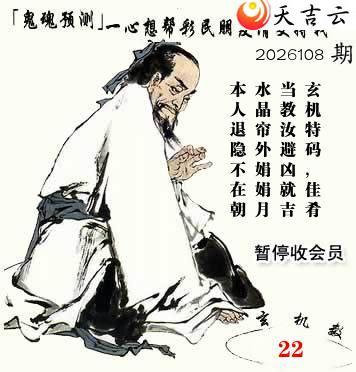 天吉云
「鬼魂预测」一心想帮彩民朋友
2026108 期
玄机特码，佳肴
当教汝避凶就吉
水晶帘外娟娟月
本人退隐不在朝
暂停收会员
玄机数
22